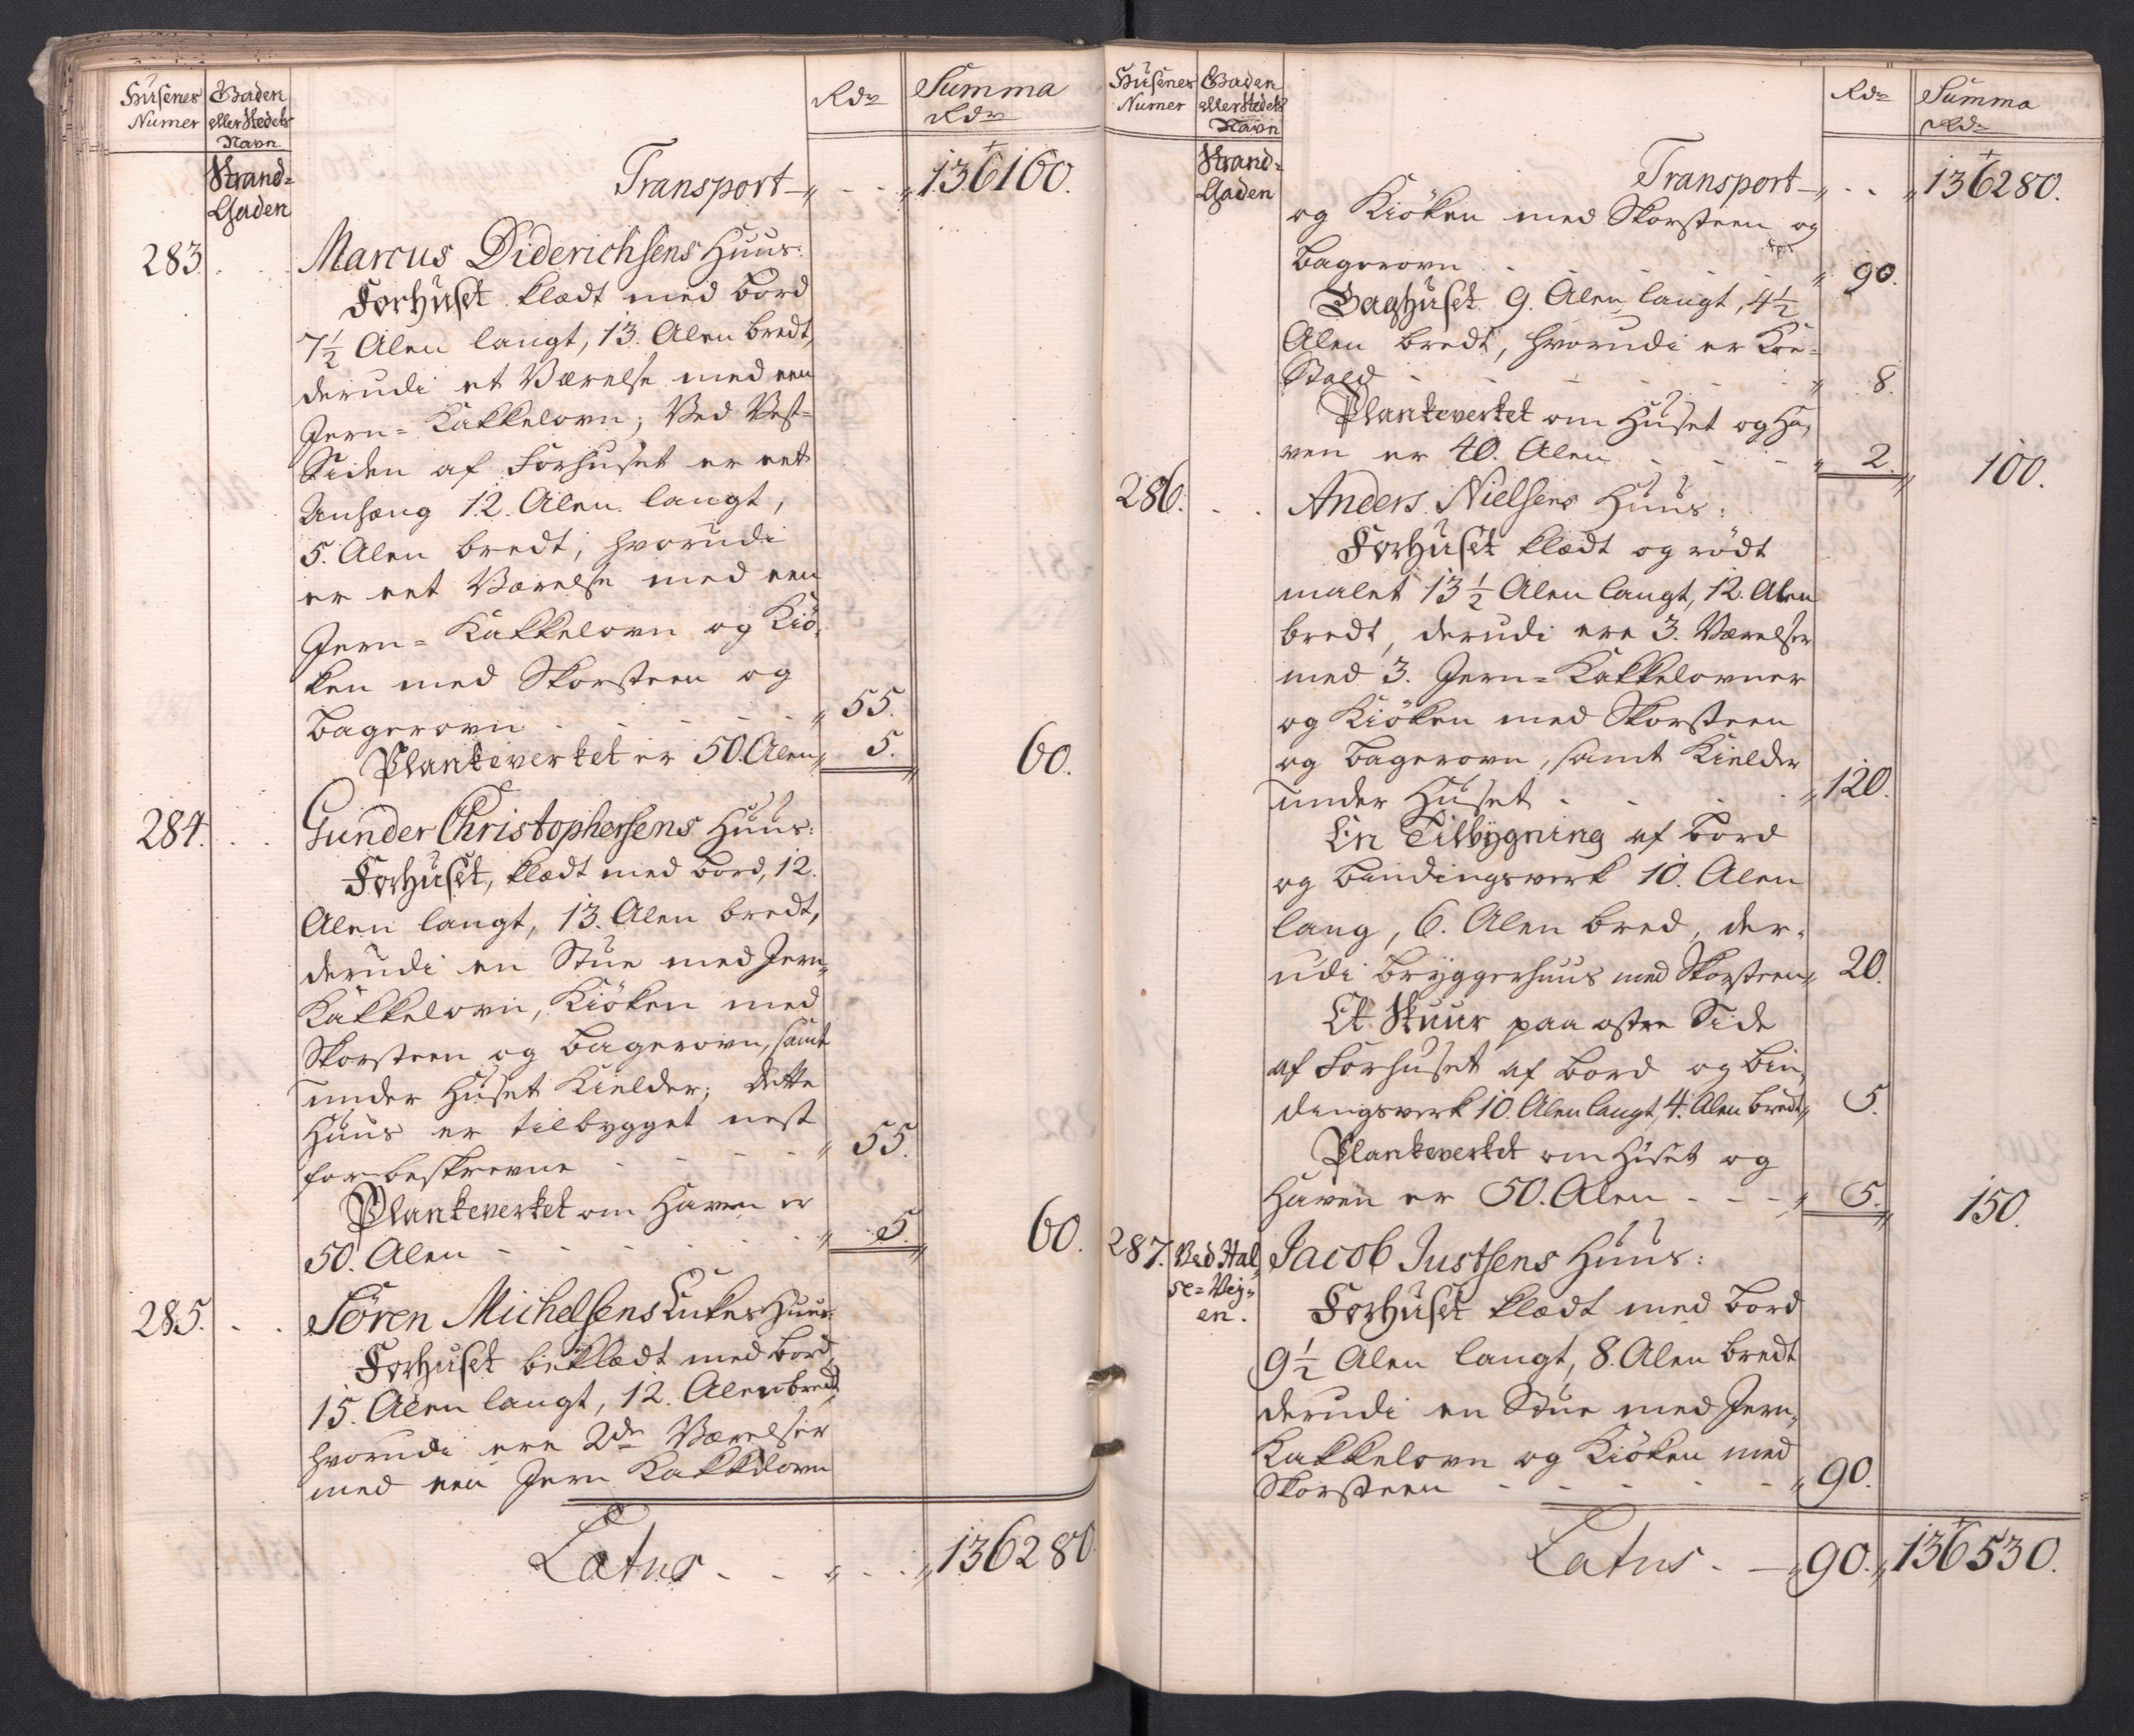 Husenes Numer
Gaden eller Stedets Navn
Rdr
Summa Rdr
Strand=
Gaden
Transport - - 136160.
283. Marcus Diderichsens Huus:
Forhuset klædt med bord
7½ Alen langt, 13. Alen bredt,
derudi et Værelse med een
Jern=Kakkelovn; Ved Vest=
Siden af Forhuset er eet
Anhæng 12. Alen langt,
5. Alen bredt, hvorudi
er eet Værelse med een
Jern=Kakkelovn og Kiö,
ken med Skorsteen og
bagerovn - - - - 55.
Plankeverket er 50. Alen 5. 60.
284. Gunder Christophersens Huus:
Forhuset, klædt med bord, 12.
Alen langt, 13. Alen bredt,
derudi en Stue med Jern,
Kakkelovn, Kiöken med
Skorsteen og bagerovn, samt
under Huset Kielder; dette
Huus er tilbygget nest
forbeskrevne - - - - 55.
Plankeverket om Haven er
50. Alen - - - - - 5. 60.
285. Sören Michelsens Lukes Huus:
Forhuset beklædt med bord,
15. Alen langt, 12. Alen bredt,
hvorudi ere 2de Værelser
med een Jern Kakkelovn
Latus - - - 136280.
Husenes Numer
Gaden eller Stedets Navn
Rdr
Summa Rdr
Strand=
Gaden
Transport - - 136280.
og Kiöken med Skorsteen og
bagerovn - - - - 90.
Baghuset 9. Alen langt, 4½
Alen bredt, hvorudi er Koe-
Stald - - - - - 8.
Plankeverket om Huset og Ha,
ven er 40. Alen - - - 2. 100.
286. Anders Nielsens Huus:
Forhuset klædt og rödt
malet 13½ Alen langt, 12. Alen
bredt, derudi ere 3. Værelser
med 3. Jern=Kakkelovner
og Kiöken med Skorsteen
og bagerovn, samt Kielder
under Huset - - - 120.
En Tilbygning af bord
og bindingsverk 10. Alen
lang, 6. Alen bred, der-
udi bryggerhuus med Skorsteen 20.
Et Skuur paa østre Side
af Forhuset af bord og bin,
dingsverk 10. Alen langt, 4. Alen bredt, 5.
Plankeverket om Huset og
Haven er 50. Alen - - - 5. 150.
287. Ved Hal,
se=Vej=
en.
Jacob Justsens Huus:
Forhuset klædt med bord
9½ Alen langt, 8. Alen bredt
derudi en Stue med Jern,
Kakkelovn og Kiöken med
Skorsteen - - - - - 90.
Latus - - 90. 136530.